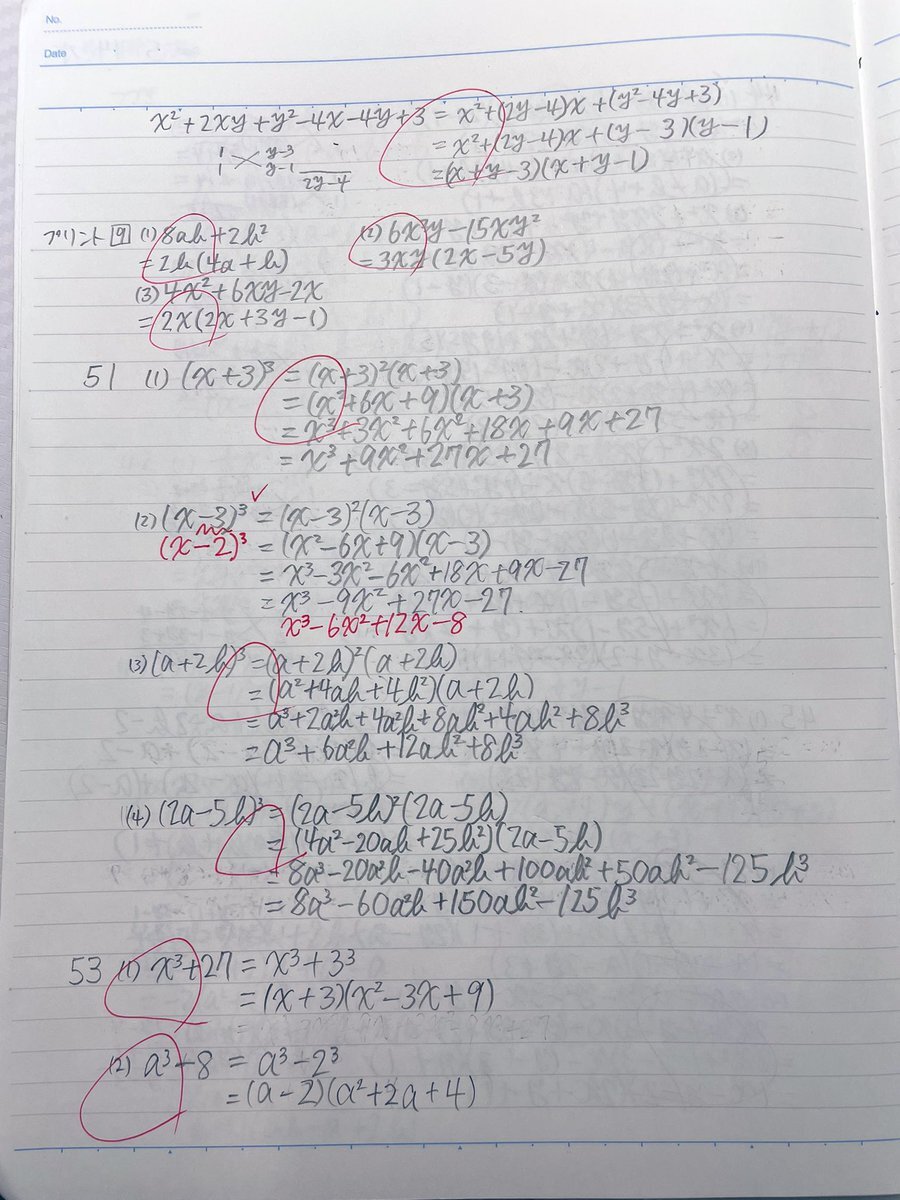 No.
Date
x²+2xy+y²-4x-4y+3 = x²+(2y-4)x+(y²-4y+3)
= x²+(2y-4)x+(y-3)(y-1)
= (x+y-3)(x+y-1)
1 y-3
1 y-1
2y-4
プリント 9 (1) 8ab+2b²
= 2b(4a+b)
(2) 6x²y-15xy²
= 3xy(2x-5y)
(3) 4x²+6xy-2x
= 2x(2x+3y-1)
51 (1) (x+3)³ = (x+3)²(x+3)
= (x²+6x+9)(x+3)
= x³+3x²+6x²+18x+9x+27
= x³+9x²+27x+27
(2) (x-3)³ = (x-3)²(x-3)
(x-2)³ = (x²-6x+9)(x-3)
= x³-3x²-6x²+18x+9x-27
= x³-9x²+27x-27.
x³-6x²+12x-8
(3) (a+2b)³ = (a+2b)²(a+2b)
= (a²+4ab+4b²)(a+2b)
= a³+2a²b+4a²b+8ab²+4ab²+8b³
= a³+6a²b+12ab²+8b³
(4) (2a-5b)³ = (2a-5b)²(2a-5b)
= (4a²-20ab+25b²)(2a-5b)
= 8a³-20a²b-40a²b+100ab²+50ab²-125b³
= 8a³-60a²b+150ab²-125b³
53 (1) x³+27 = x³+3³
= (x+3)(x²-3x+9)
(2) a³-8 = a³-2³
= (a-2)(a²+2a+4)